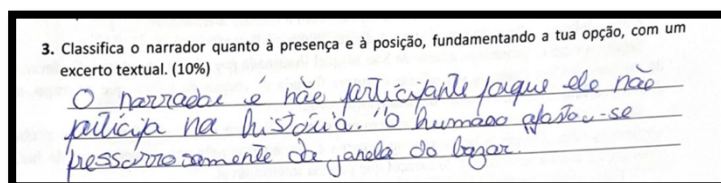 3. Classifica o narrador quanto à presença e à posição, fundamentando a tua opção, com um
excerto textual. (10%)
O narrador é não participante porque ele não
participa na história. "O humano afastou-se
pressarosamente da janela do bazar.